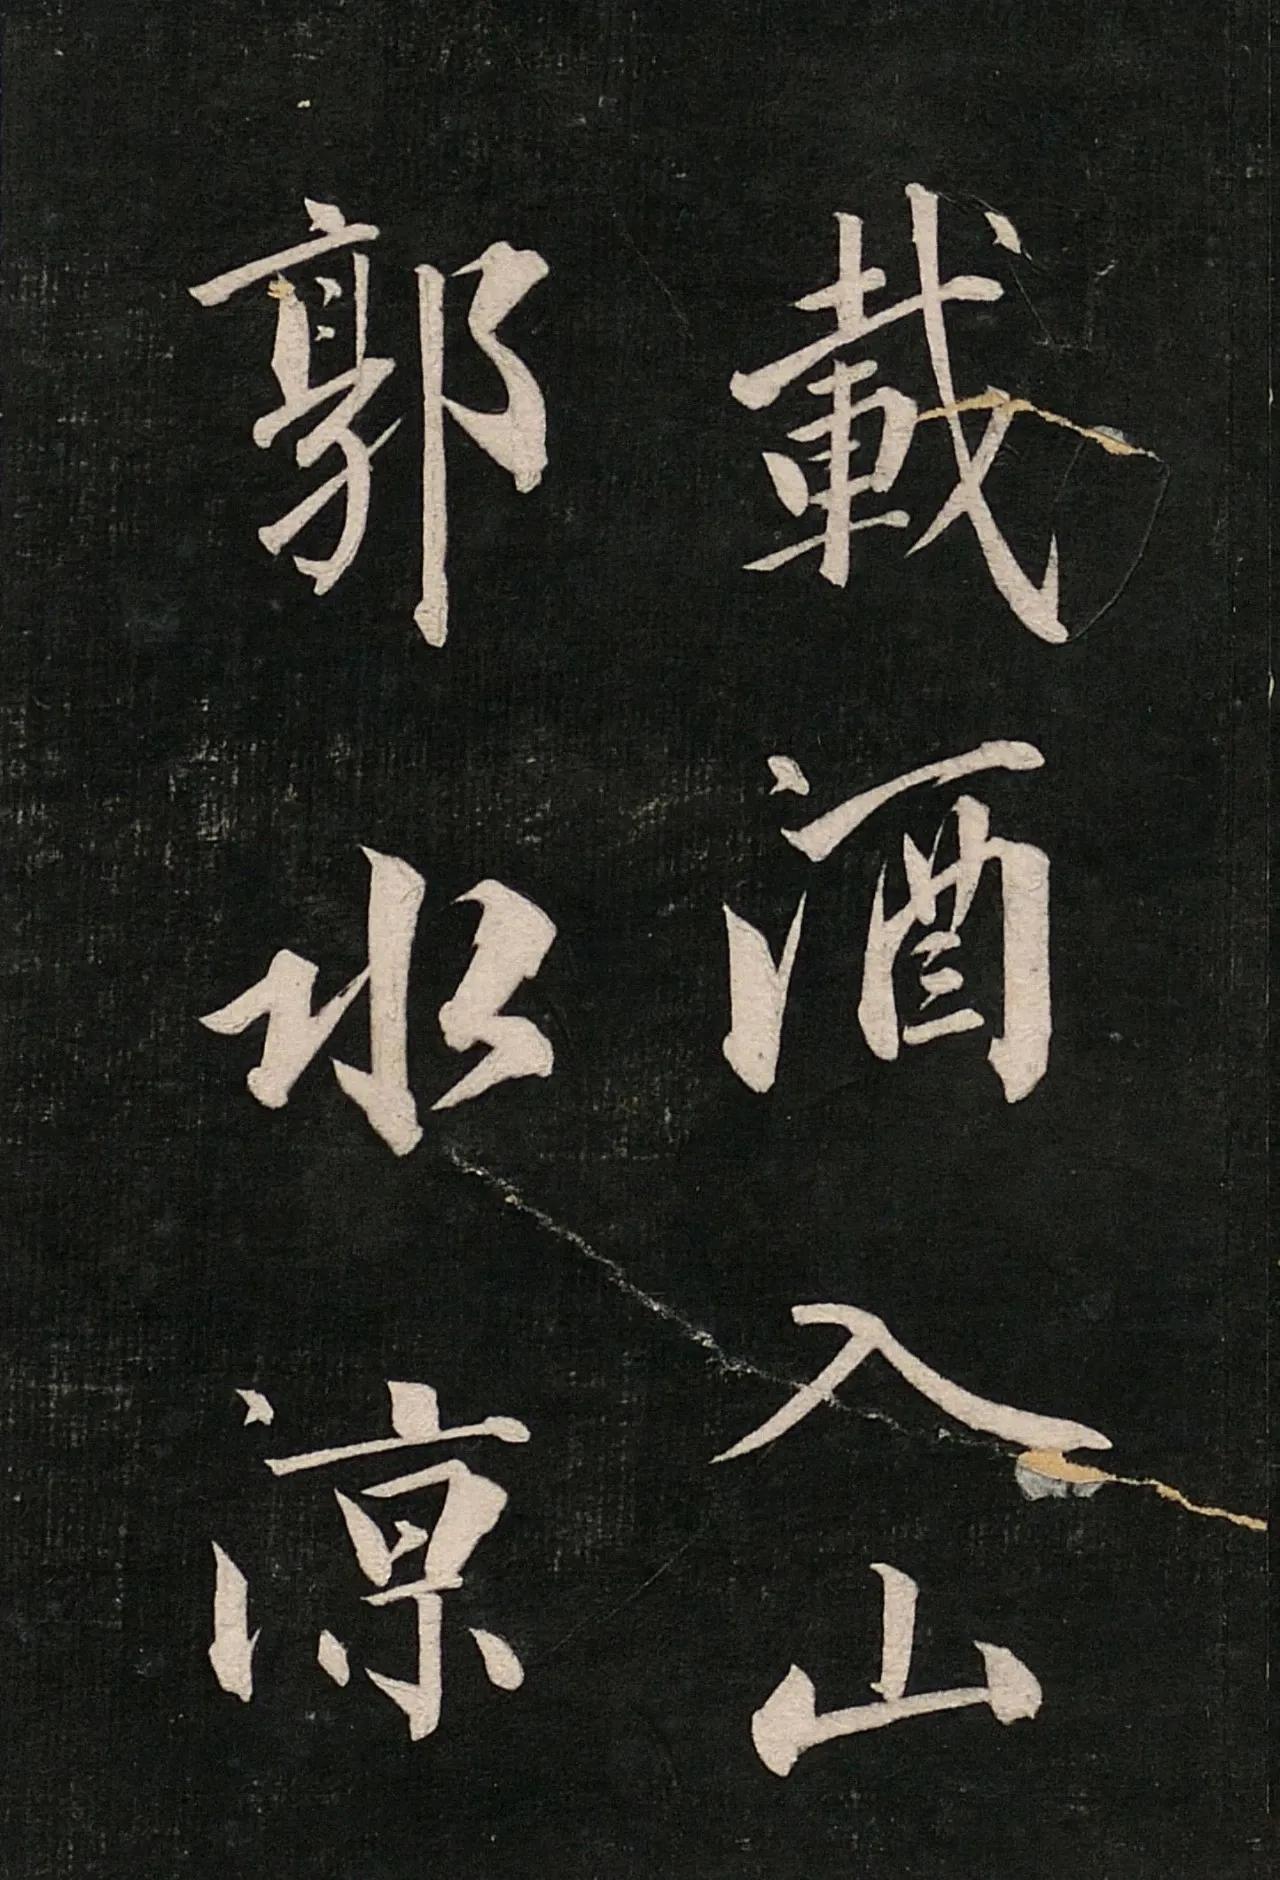 載酒入山
郭水涼